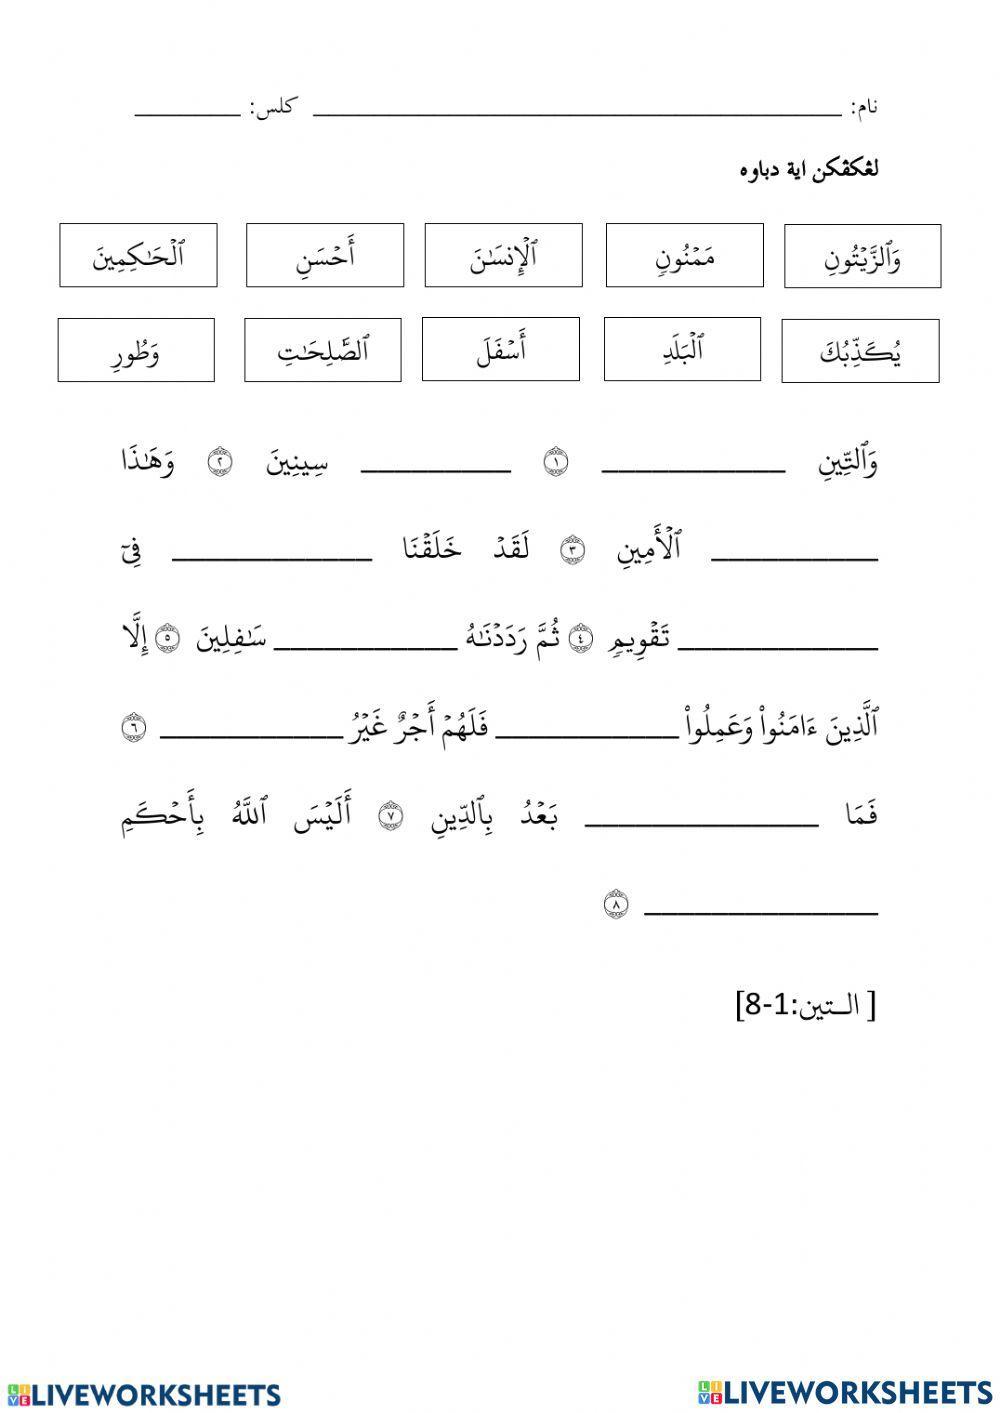 نام: ________________________________________ كلس: _________
لڠكڤكن اية دباوه
وَٱلزَّيْتُونِ مَمْنُونٖ ٱلْإِنسَٰنَ أَحْسَنِ ٱلْحَٰكِمِينَ
يُكَذِّبُكَ ٱلْبَلَدِ أَسْفَلَ ٱلصَّٰلِحَٰتِ وَطُورِ
وَٱلتِّينِ ___________ ١ _________ سِينِينَ ٢ وَهَٰذَا
__________ ٱلْأَمِينِ ٣ لَقَدْ خَلَقْنَا ____________ فِىٓ
____________ تَقْوِيمٖ ٤ ثُمَّ رَدَدْنَٰهُ ___________ سَٰفِلِينَ ٥ إِلَّا
ٱلَّذِينَ ءَامَنُوا۟ وَعَمِلُوا۟ ___________ فَلَهُمْ أَجْرٌ غَيْرُ ___________ ٦
فَمَا ______________ بَعْدُ بِٱلدِّينِ ٧ أَلَيْسَ ٱللَّهُ بِأَحْكَمِ
______________ ٨
[ التين:1-8]
LIVEWORKSHEETS LIVEWORKSHEETS